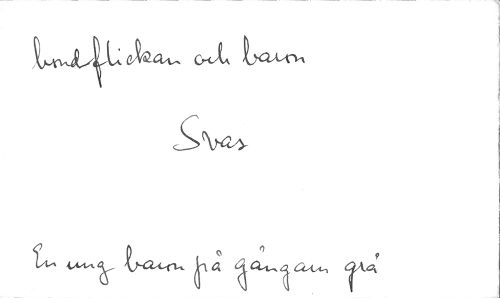 bondflickan och baron
Svas
En ung baron på gångarn grå